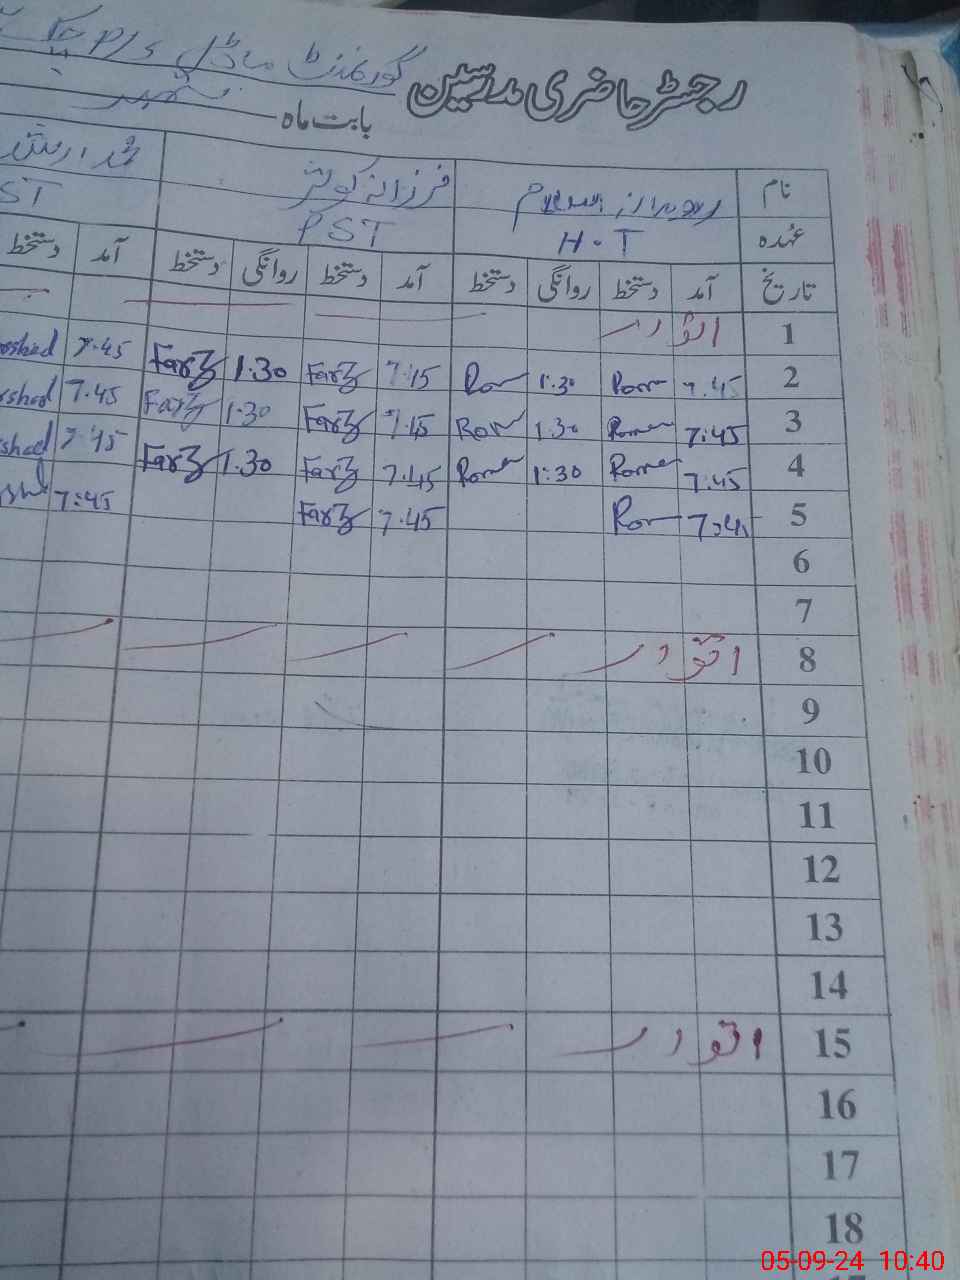 رجسٹر حاضری مدرسین گورنمنٹ ماڈل
بابت ماہ ستمبر
نام فرزانہ کوثر
عہدہ H.T PST ST
تاریخ آمد دستخط روانگی دستخط آمد دستخط روانگی دستخط آمد دستخط
1 اتوار
2 7.45 Rom 1:30 Rom 7.45 Farz 1.30 Farz 7.45
3 7:45 Rome 1.30 Rom 7.45 Farz 1.30 Farz 7.45
4 7.45 Rome 1:30 Rome 7.45 Farz 1.30 Farz 7.45
5 7:45 Rom 7.45 Farz 7:45
6
7
8 اتوار
9
10
11
12
13
14
15 اتوار
16
17
18
05-09-24 10:40